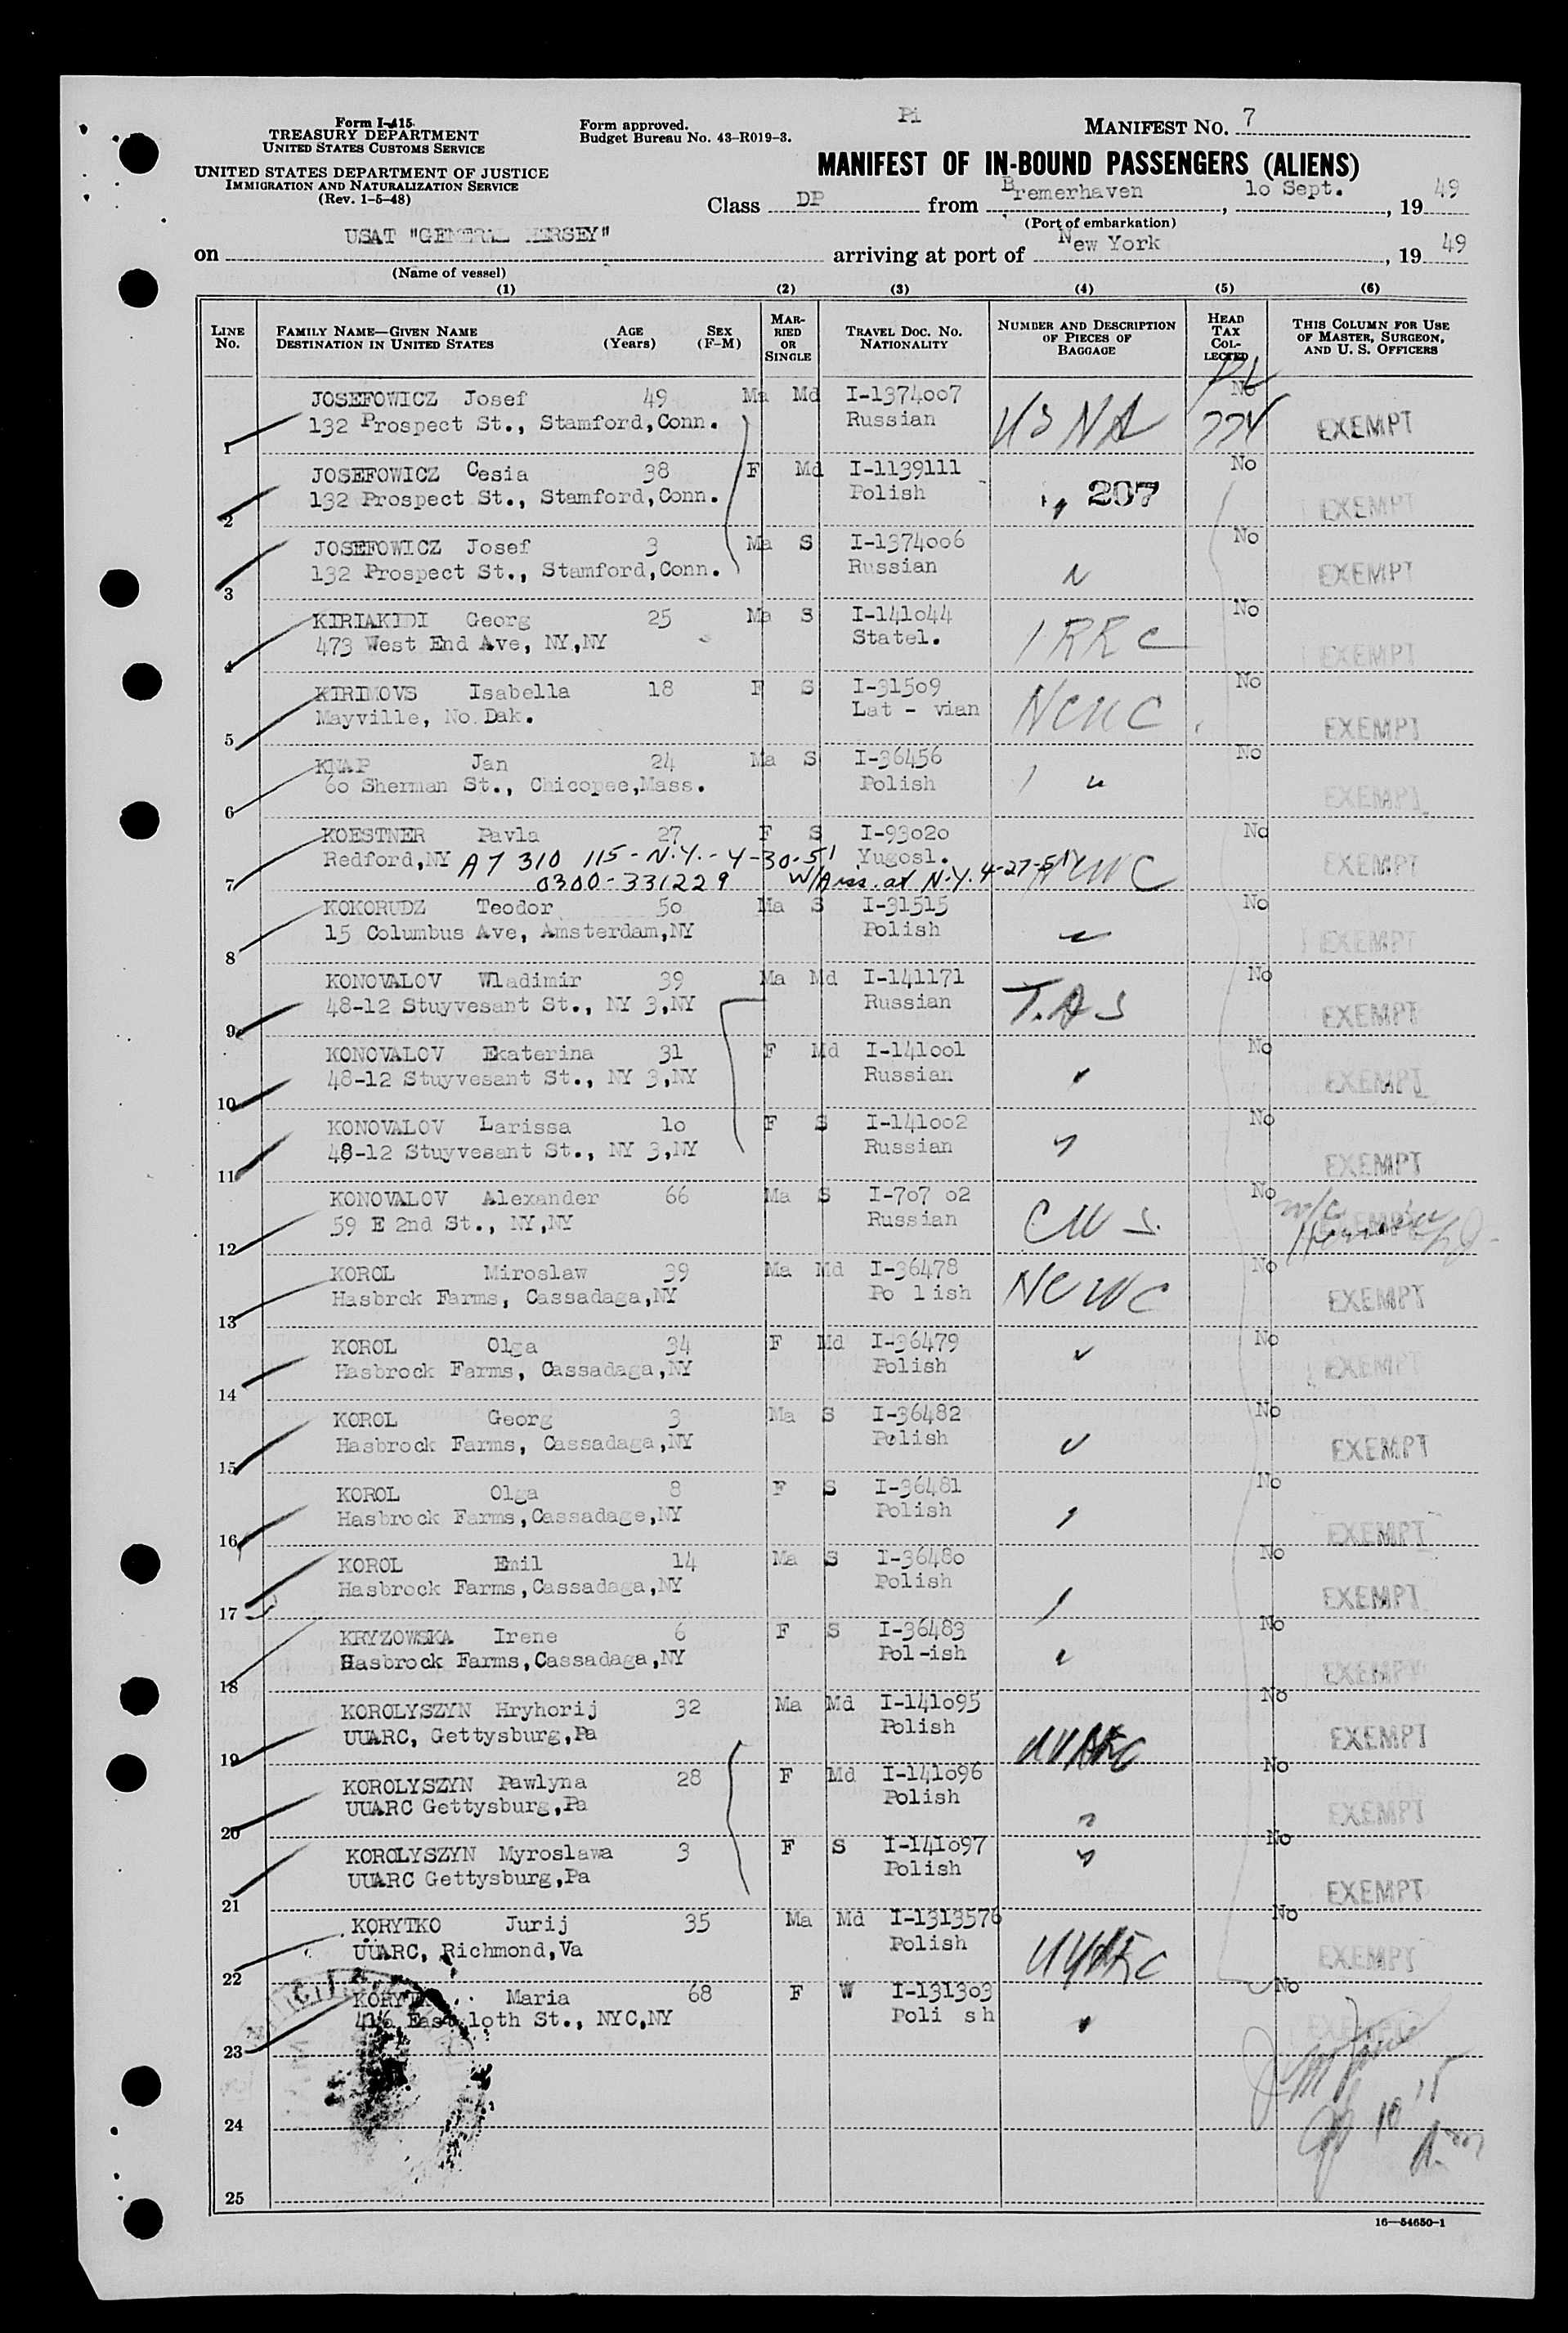 Pi
Form I-415
TREASURY DEPARTMENT
UNITED STATES CUSTOMS SERVICE
UNITED STATES DEPARTMENT OF JUSTICE
IMMIGRATION AND NATURALIZATION SERVICE
(Rev. 1-5-48)
Form approved.
Budget Bureau No. 43-R019-3.
MANIFEST NO. 7
MANIFEST OF IN-BOUND PASSENGERS (ALIENS)
Class DP from Bremerhaven, 1o Sept., 1949
(Port of embarkation)
on USAT "GENERAL HERSEY" arriving at port of New York, 1949
(Name of vessel)
(1) (2) (3) (4) (5) (6)
LINE No. FAMILY NAME—GIVEN NAME DESTINATION IN UNITED STATES AGE (Years) SEX (F-M) MARRIED OR SINGLE TRAVEL DOC. NO. NATIONALITY NUMBER AND DESCRIPTION OF PIECES OF BAGGAGE HEAD TAX COLLECTED THIS COLUMN FOR USE OF MASTER, SURGEON, AND U. S. OFFICERS
JOSEFOWICZ Josef 49 Ma Md I-1374oo7 No
1 132 Prospect St., Stamford,Conn. Russian USNA EXEMPT
JOSEFOWICZ Cesia 38 F Md I-1139111 No
2 132 Prospect St., Stamford,Conn. Polish 207 EXEMPT
JOSEFOWICZ Josef 3 Ma S I-1374oo6 No
3 132 Prospect St., Stamford,Conn. Russian EXEMPT
KIRIAKIDI Georg 25 Ma S I-141o44 No
4 473 West End Ave, NY,NY Statel. IRRC EXEMPT
KIRIMOVS Isabella 18 F S I-315o9 No
5 Mayville, No.Dak. Lat - vian NCWC EXEMPT
KNAP Jan 24 Ma S I-36456 No
6 6o Sherman St., Chicopee,Mass. Polish EXEMPT
KOESTNER Pavla 27 F S I-93o2o No
7 Redford,NY A7 310 115 - N.Y. - 4-30-51 Yugosl. NCWC EXEMPT
0300-331229 W/Arr. at N.Y. 4-27-51
KOKORUDZ Teodor 5o Ma S I-31515 No
8 15 Columbus Ave, Amsterdam,NY Polish EXEMPT
KONOVALOV Wladimir 39 Ma Md I-141171 No
9 48-12 Stuyvesant St., NY 3,NY Russian T.A S EXEMPT
KONOVALOV Ekaterina 31 F Md I-141oo1 No
10 48-12 Stuyvesant St., NY 3,NY Russian EXEMPT
KONOVALOV Larissa 1o F S I-141oo2 No
11 48-12 Stuyvesant St., NY 3,NY Russian EXEMPT
KONOVALOV Alexander 66 Ma S I-7o7 o2 No
12 59 E 2nd St., NY,NY Russian CWS. EXEMPT
KOROL Miroslaw 39 Ma Md I-36478 No
13 Hasbrck Farms, Cassadaga,NY Po lish NCWC EXEMPT
KOROL Olga 34 F Md I-36479 No
14 Hasbrock Farms, Cassadaga,NY Polish EXEMPT
KOROL Georg 3 Ma S I-36482 No
15 Hasbrock Farms, Cassadaga,NY Polish EXEMPT
KOROL Olga 8 F S I-36481 No
16 Hasbrock Farms,Cassadage,NY Polish EXEMPT
KOROL Emil 14 Ma S I-3648o No
17 Hasbrock Farms,Cassadaga,NY Polish EXEMPT
KRYZOWSKA Irene 6 F S I-36483 No
18 Hasbrock Farms,Cassadaga,NY Pol-ish EXEMPT
KOROLYSZYN Hryhorij 32 Ma Md I-141o95 No
19 UUARC, Gettysburg,Pa Polish UUARC EXEMPT
KOROLYSZYN Pawlyna 28 F Md I-141o96 No
20 UUARC Gettysburg,Pa Polish EXEMPT
KOROLYSZYN Myroslawa 3 F S I-141o97 No
21 UUARC Gettysburg,Pa Polish EXEMPT
KORYTKO Jurij 35 Ma Md I-1313576 No
22 UUARC, Richmond,Va Polish UUARC EXEMPT
Maria 68 F W I-1313o3 No
23 East 1oth St., NYC,NY Poli sh EXEMPT
24
25
16—54650-1